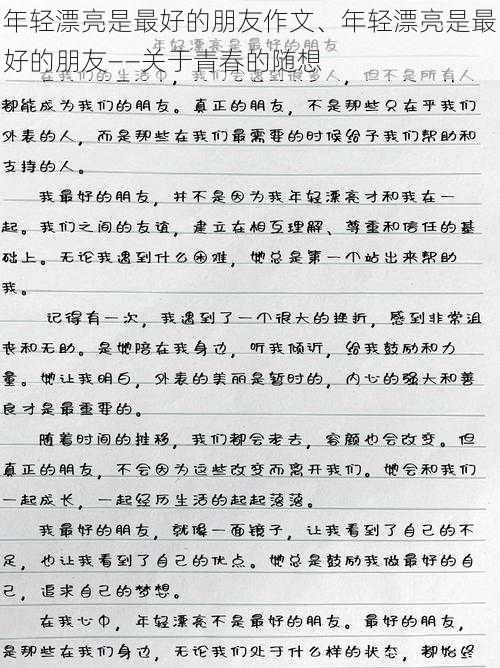 年轻漂亮是最好的朋友作文、年轻漂亮是最
好的朋友——关于青春的随想
年轻漂亮是最好的朋友
在我们的生活中，我们会遇到很多人，但不是所有人
都能成为我们的朋友。真正的朋友，不是那些只在乎我们
外表的人，而是那些在我们最需要的时候给予我们帮助和
支持的人。
我最好的朋友，并不是因为我年轻漂亮才和我在一
起。我们之间的友谊，建立在相互理解、尊重和信任的基
础上。无论我遇到什么困难，她总是第一个站出来帮助
我。
记得有一次，我遇到了一个很大的挫折，感到非常沮
丧和无助。是她陪在我身边，听我倾诉，给我鼓励和力
量。她让我明白，外表的美丽是暂时的，内心的强大和善
良才是最重要的。
随着时间的推移，我们都会老去，容颜也会改变。但
真正的朋友，不会因为这些改变而离开我们。她会和我们
一起成长，一起经历生活的起起落落。
我最好的朋友，就像一面镜子，让我看到了自己的不
足，也让我看到了自己的优点。她总是鼓励我做最好的自
己，追求自己的梦想。
在我心中，年轻漂亮不是最好的朋友。最好的朋友，
是那些在我们身边，无论我们处于什么样的状态，都始终